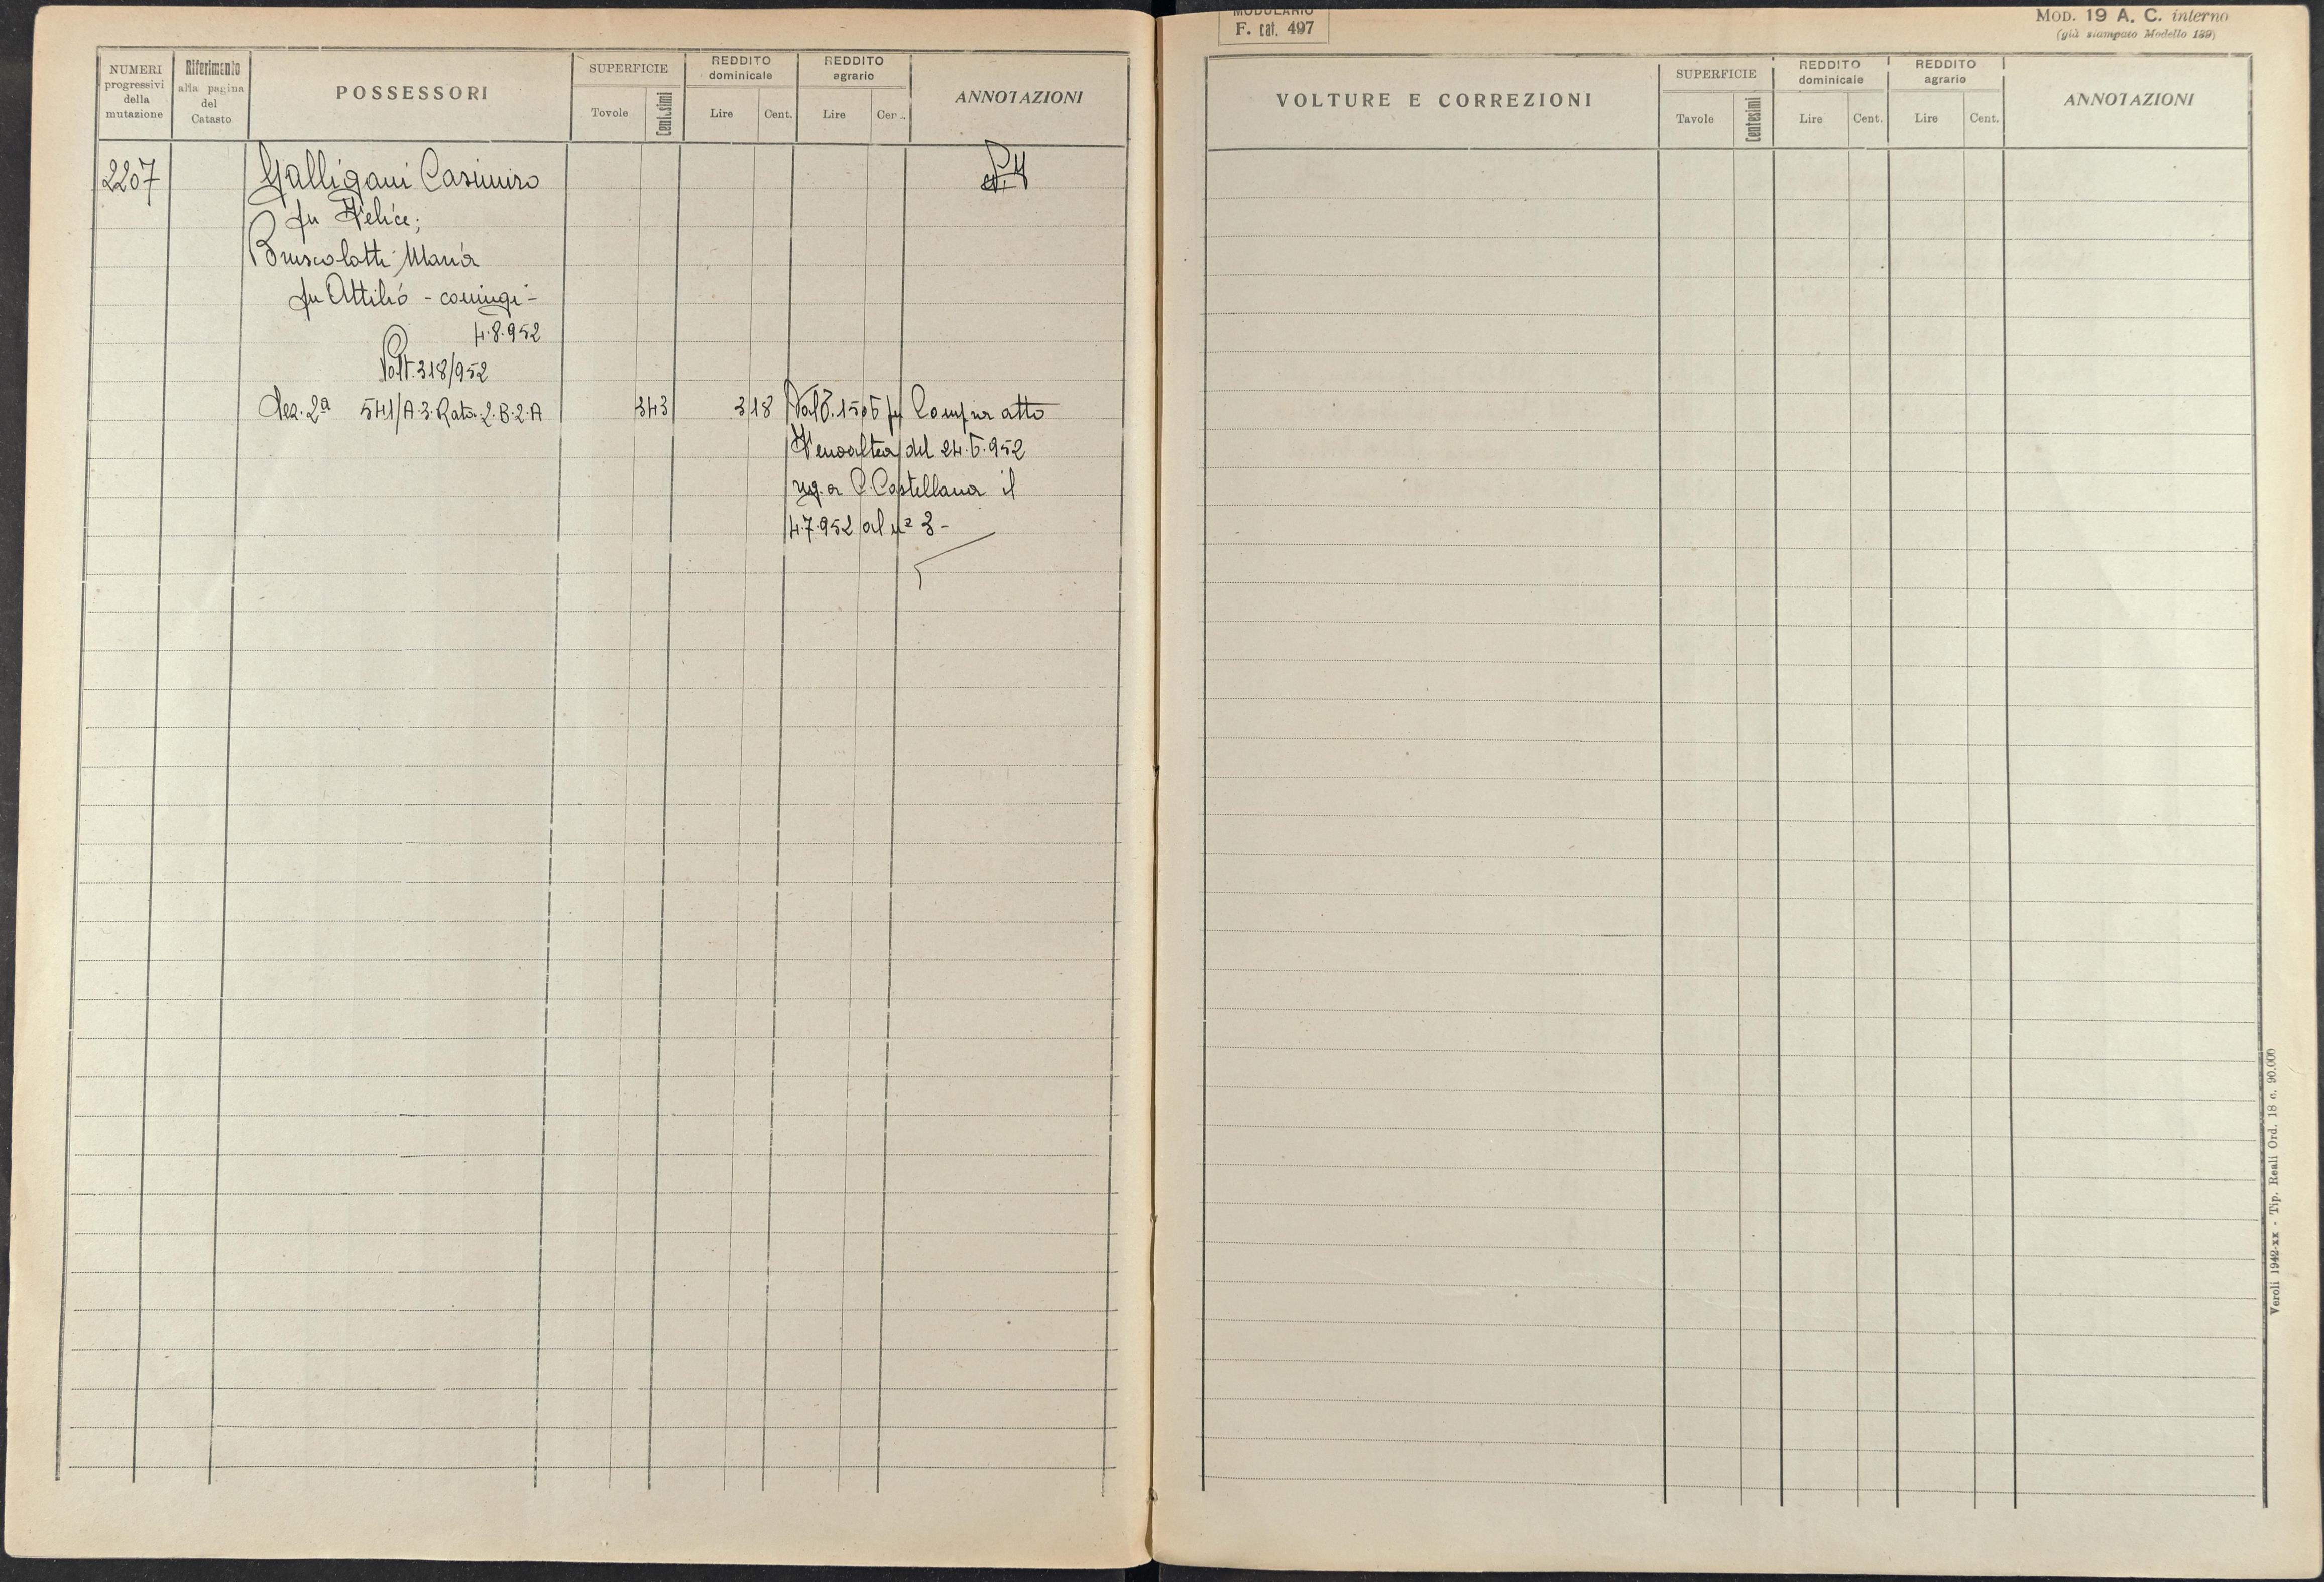 NUMERI
progressivi
della
mutazione
Riferimento
alla pagina
del
Catasto
POSSESSORI
SUPERFICIE
Tovole
Centesimi
REDDITO
dominicale
Lire
Cent.
REDDITO
agrario
Lire
Cen..
ANNOTAZIONI
2207
Galligani Casimiro
fu Felice;
Bruscolotti Maria
fu Attilio - coniugi -
4.8.952
Volt. 318/952
Sez. 2ª 541/A-3-Rata-2-B-2-A 343 318 Compra atto
del 24.5.952
reg. a C. Castellana il
4.7.952 al nº 3 -
MODULARIO
F. cat. 497
MOD. 19 A. C. interno
(già stampato Modello 189)
VOLTURE E CORREZIONI
SUPERFICIE
Tavole
Centesimi
REDDITO
dominicale
Lire
Cent.
REDDITO
agrario
Lire
Cent.
ANNOTAZIONI
Veroli 1942-xx - Tip. Reali Ord. 18 c. 90.000